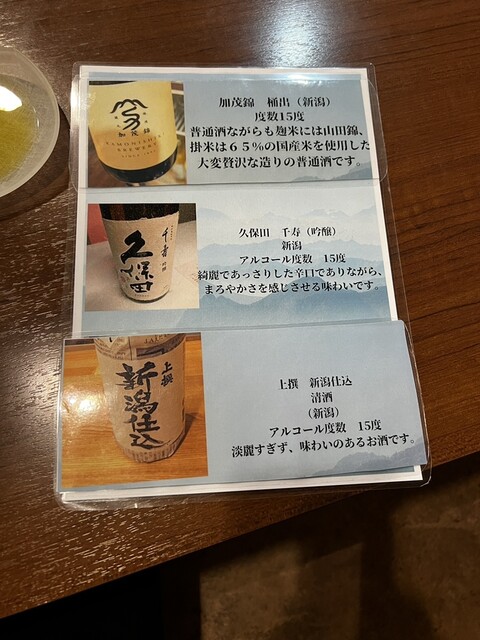 加茂錦
KAMONISHIKI
BREWERY
加茂錦　桶出（新潟）
度数15度
普通酒ながらも麹米には山田錦、
掛米は６５％の国産米を使用した
大変贅沢な造りの普通酒です。
千寿
吟醸
久保田
久保田　千寿（吟醸）
新潟
アルコール度数　15度
綺麗であっさりした辛口でありながら、
まろやかさを感じさせる味わいです。
上撰
新潟仕込
上撰　新潟仕込
清酒
（新潟）
アルコール度数　15度
淡麗すぎず、味わいのあるお酒です。